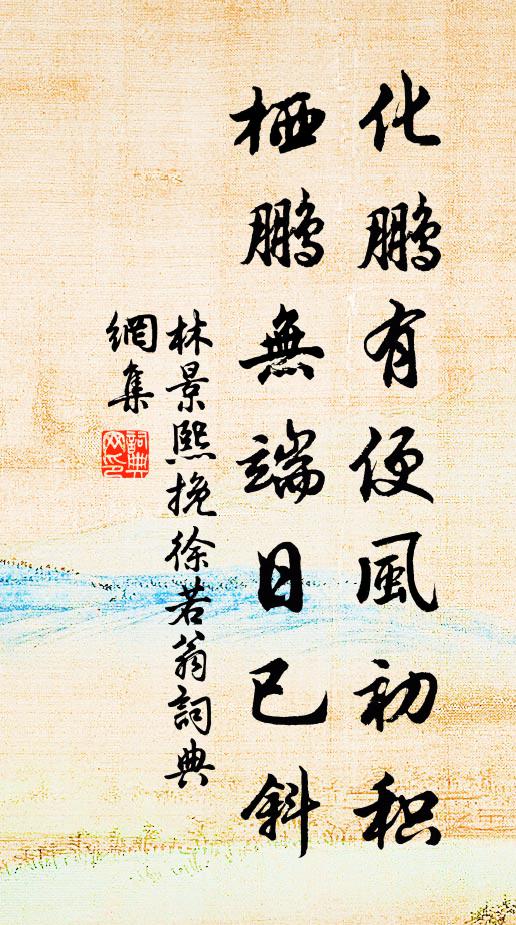 化鵬有便風初积
栖鵬無端日已斜
林景熙挽徐若翁詞典
網集
詞典
网印